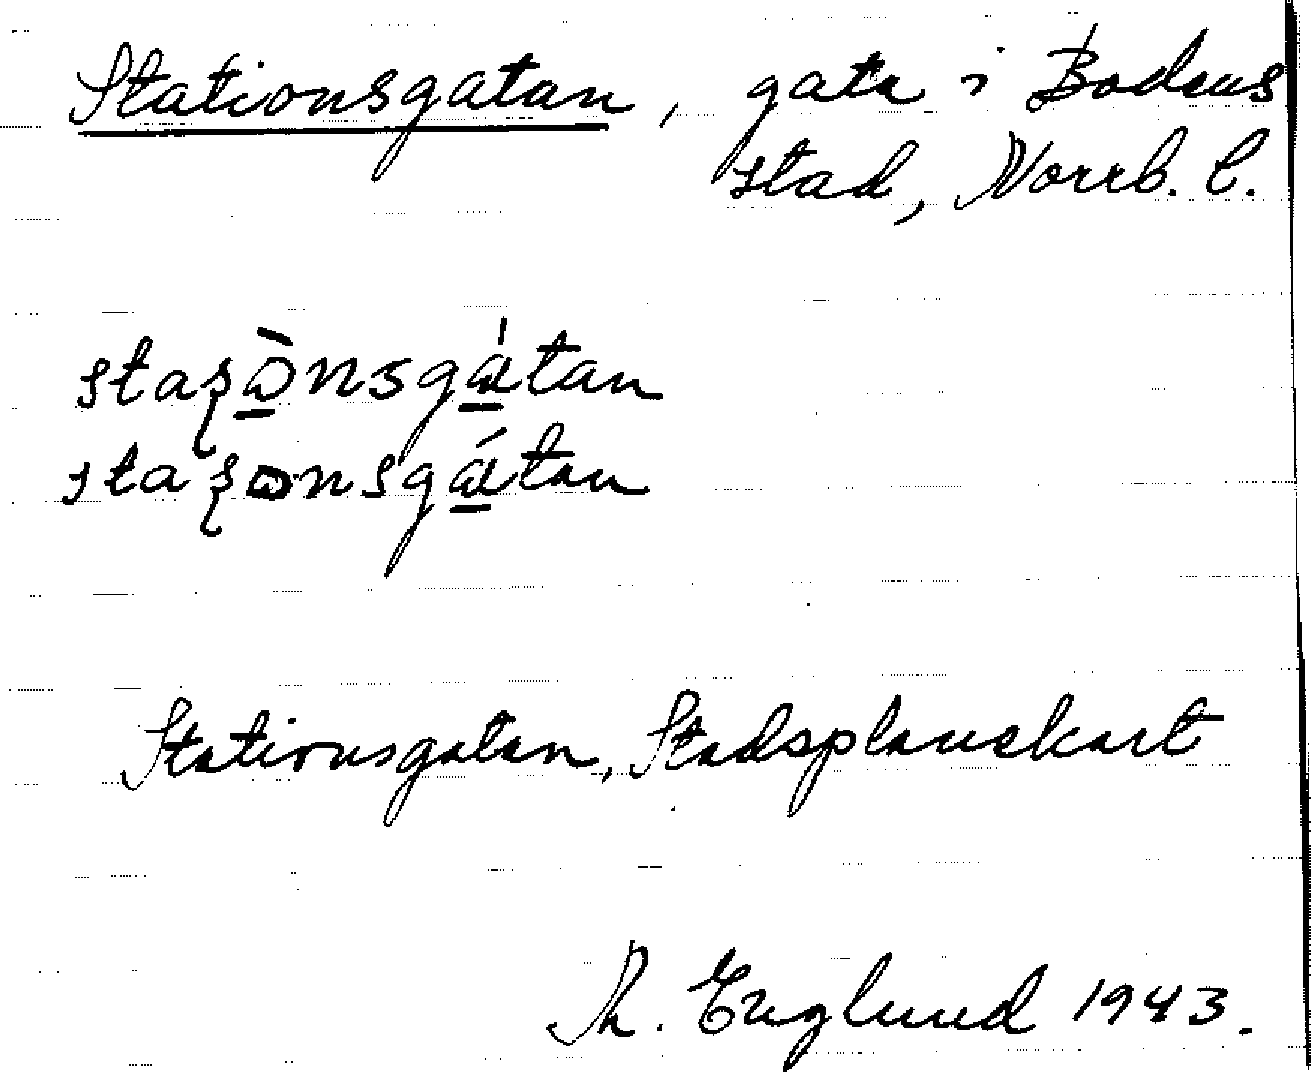 Stationsgatan, gata i Bodens
stad, Norrb. l.
staʂònsgátan
staʂonsgátan
Stationsgatan, Stadsplanekart
Th. Englund 1943.